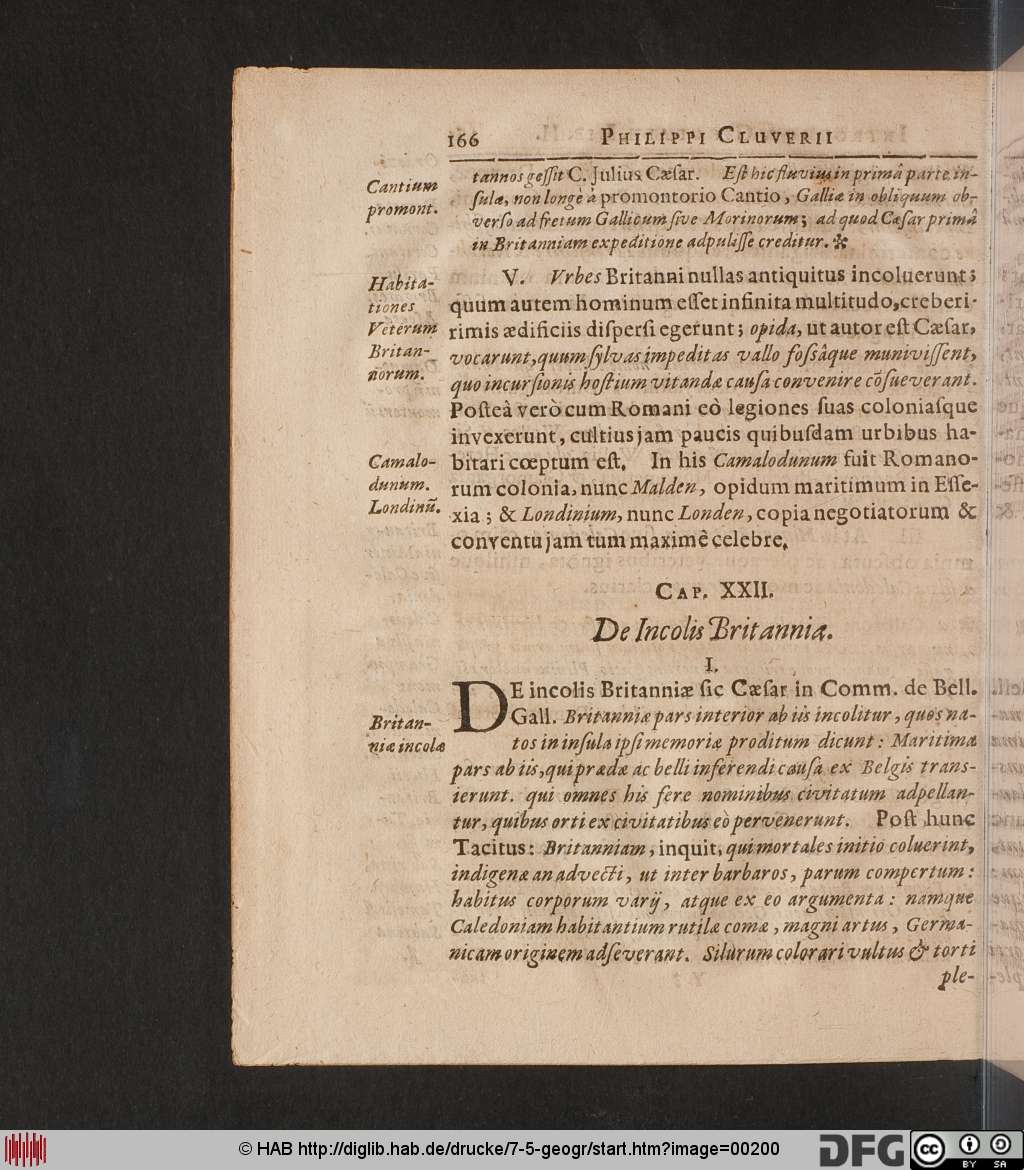 166 PHILIPPI CLUVERII
Cantium
promont.
tannos geſſit C. Julius Cæſar. Eſt hic fluvius in primâ parte in-
ſulæ, non longè à promontorio Cantio, Galliæ in obliquum ob-
verſo ad fretum Gallicum ſive Morinorum; ad quod Cæſar primâ
in Britanniam expeditione adpuliſſe creditur. ✼
Habita-
tiones
Veterum
Britan-
norum.
V. Vrbes Britanni nullas antiquitus incoluerunt;
quum autem hominum eſſet infinita multitudo, creberi-
rimis ædificiis diſperſi egerunt; opida, ut autor eſt Cæſar,
vocarunt, quum ſylvas impeditas vallo foſsâque muniviſſent,
quo incurſionis hoſtium vitandæ cauſa convenire cõſueverant.
Poſteâ verò cum Romani eò legiones ſuas coloniaſque
invexerunt, cultius jam paucis quibuſdam urbibus ha-
Camalo-
dunum.
Londinũ.
bitari cœptum eſt. In his Camalodunum fuit Romano-
rum colonia, nunc Malden, opidum maritimum in Eſſe-
xia; & Londinium, nunc Londen, copia negotiatorum &
conventu jam tum maximê celebre.
CAP. XXII.
De Incolis Britanniæ.
I.
Britan-
niæ incolæ
DE incolis Britanniæ ſic Cæſar in Comm. de Bell.
Gall. Britanniæ pars interior ab iis incolitur, quos na-
tos in inſula ipſi memoriæ proditum dicunt: Maritima
pars ab iis, qui prædæ ac belli inferendi cauſa ex Belgis trans-
ierunt. qui omnes his fere nominibus civitatum adpellan-
tur, quibus orti ex civitatibus eò pervenerunt. Poſt hunc
Tacitus: Britanniam, inquit, qui mortales initio coluerint,
indigenæ an advecti, ut inter barbaros, parum compertum:
habitus corporum varij, atque ex eo argumenta: namque
Caledoniam habitantium rutilæ comæ, magni artus, Germa-
nicam originem adſeverant. Silurum colorari vultus & torti
ple-
© HAB http://diglib.hab.de/drucke/7-5-geogr/start.htm?image=00200
DFG
cc
BY SA